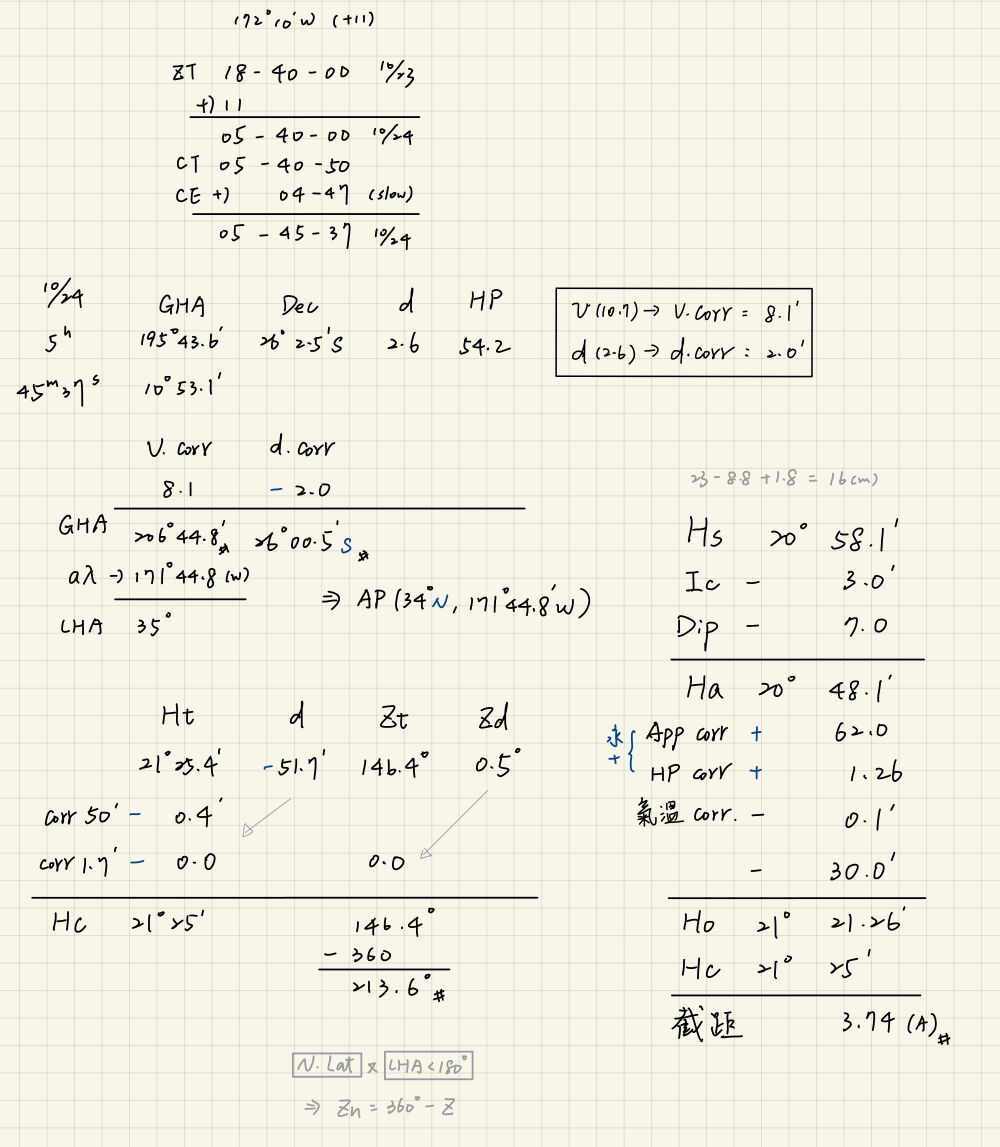 172°10'W (+11)
ZT 18-40-00 10/23
+) 11
05-40-00 10/24
CT 05-40-50
CE +) 04-47 (slow)
05-45-37 10/24
10/24 GHA Dec d HP
5h 195°43.6' 26°2.5'S 2.6 54.2
45m37s 10°53.1'
V(10.7)→ V.corr = 8.1'
d(2.6)→ d.corr : 2.0'
V. corr d. corr
8.1 - 2.0
GHA 206°44.8'# 26°00.5'S#
aλ → 171°44.8(W)
LHA 35°
⇒ AP(34°N, 171°44.8'W)
Ht d Zt Zd
21°25.4' -51.7' 146.4° 0.5°
corr 50' - 0.4'
corr 1.7' - 0.0 0.0
Hc 21°25' 146.4°
- 360
213.6°#
N. Lat x LHA<180°
⇒ Zn = 360° - Z
23-8.8+1.8 = 16(m)
Hs 20° 58.1'
Ic - 3.0'
Dip - 7.0
Ha 20° 48.1'
永+ { App corr + 62.0
HP corr + 1.26
氣溫 corr. - 0.1'
- 30.0'
Ho 21° 21.26'
Hc 21° 25'
截距 3.74 (A)#